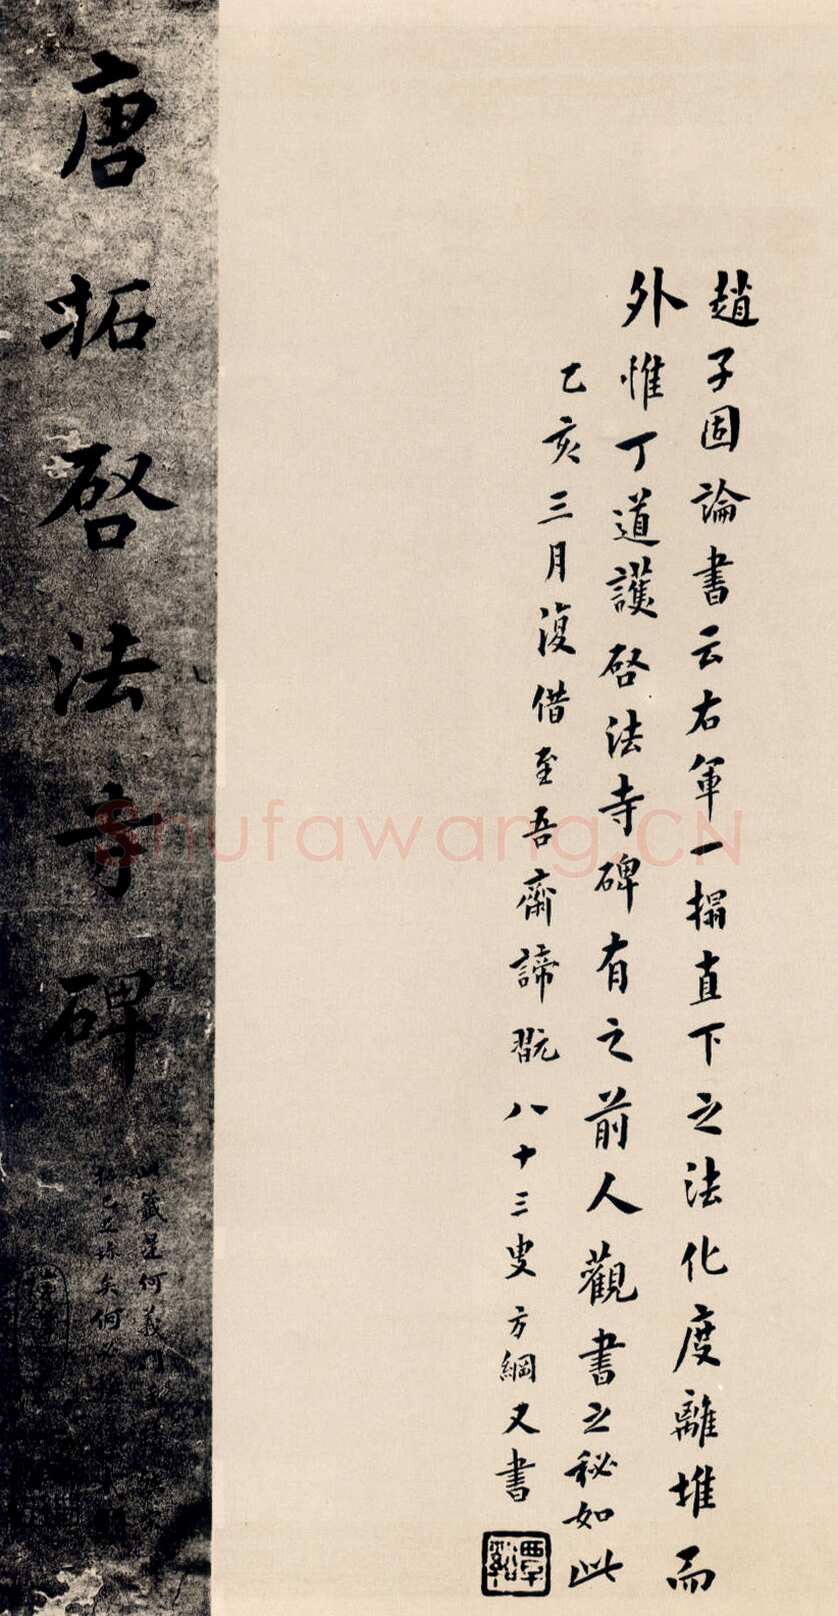 趙子固論書云右軍一搨直下之法化度離堆而
外惟丁道護啓法寺碑有之前人觀書之秘如此
乙亥三月復借至吾齋諦翫八十三叟方綱又書
覃谿
唐拓啓法寺碑
此籤是何義門
矣何必
Shufawang.CN